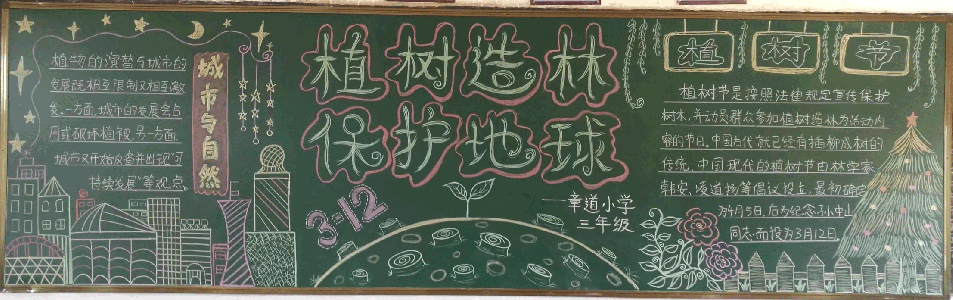 植物的演替与城市的
发展既相互限制又相互激
发。一方面,城市的发展会占
用或破坏植被,另一方面,
城市又开始改善并出现“可
持续发展”等观点。
城市与自然
植树造林
保护地球
3·12
一章道小学
三年级
植树节
植树节是按照法律规定宣传保护
树木,并动员群众参加植树造林为活动内
容的节日。中国古代就已经有插柳成树的
传统,中国现代的植树节由林学家
韩安、凌道扬等倡议设立,最初确定
为4月5日,后为纪念孙中山
同志而设为3月12日。